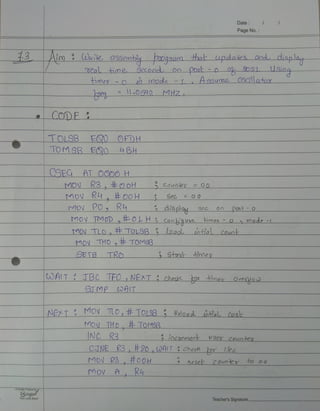 Date : / /
Page No. :
7.3 Aim : Write assembly program that updates and display
real time second on port-0 of 8051. Using
timer-0 in mode-1. Assume oscillator
freq = 11.0592 MHZ.
• CODE :
TOLSB EQU 0FDH
TOMSB EQU 4BH
CSEG AT 0000H
MOV R3, #00H ; counter = 00
MOV R4, #00H ; sec = 00
MOV P0, R4 ; display sec on port-0
MOV TMOD, #01H ; configures timer-0, mode-1
MOV TL0, #TOLSB ; load initial count
MOV TH0, #TOMSB
SETB TR0 ; start timer
WAIT : JBC TF0, NEXT ; check for timer overflow
SJMP WAIT
NEXT : MOV TL0, #TOLSB ; reload initial
MOV TH0, #TOMSB
INC R3 ; increment counter
CJNE R3, #20, WAIT ; check for 1 sec
MOV R3, #00H ; reset counter to 00
MOV A, R4
Teacher's Signature